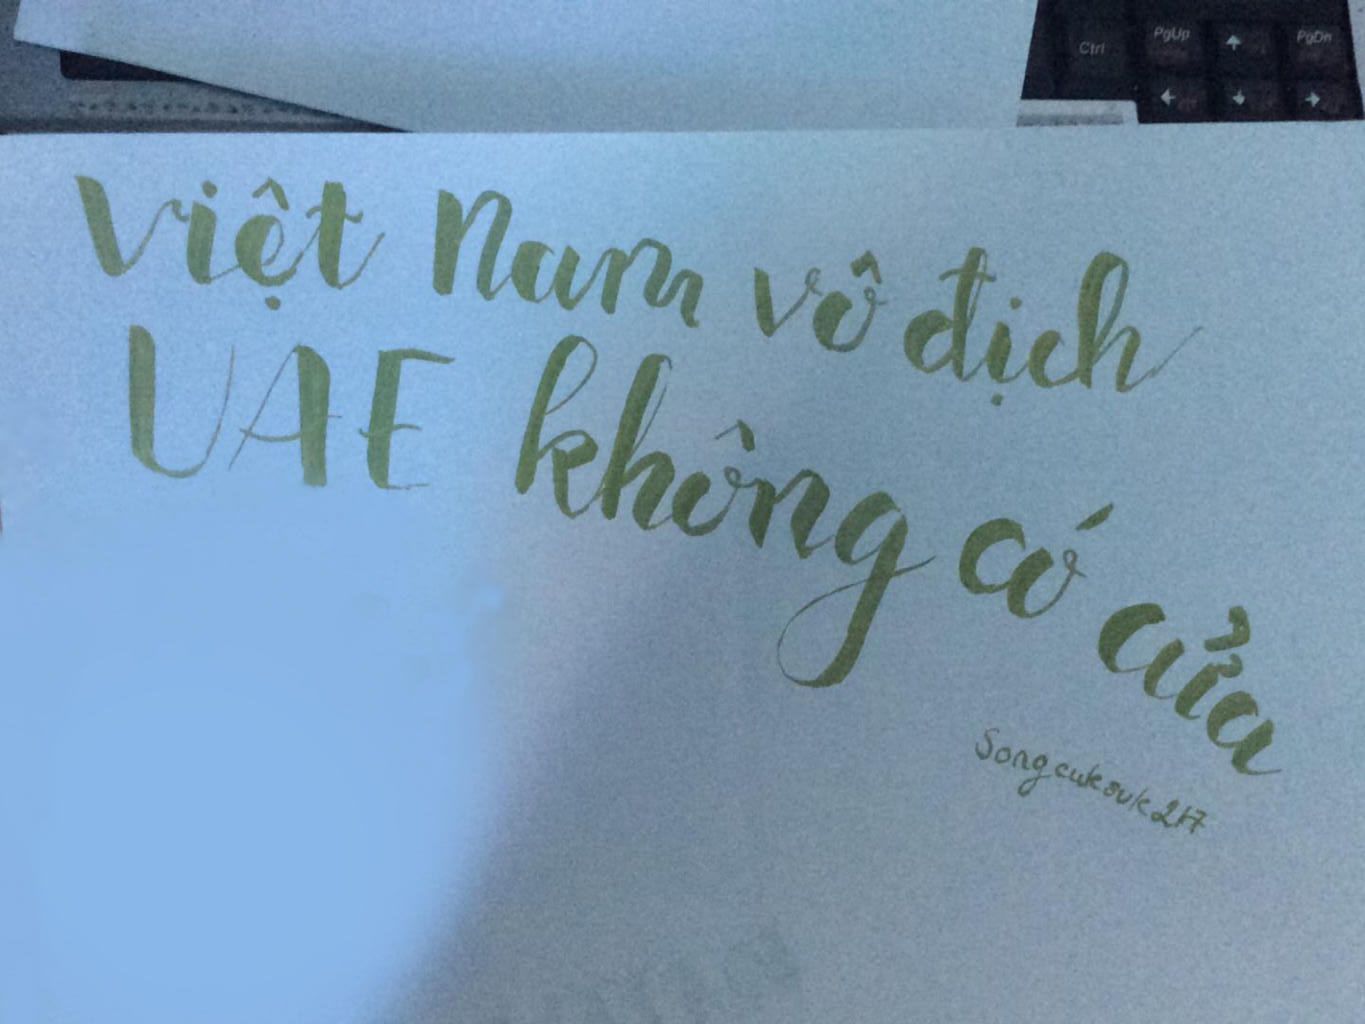 Ctrl PgUp ↑ PgDn
← ↓ →
Việt Nam vô địch
UAE không có cửa